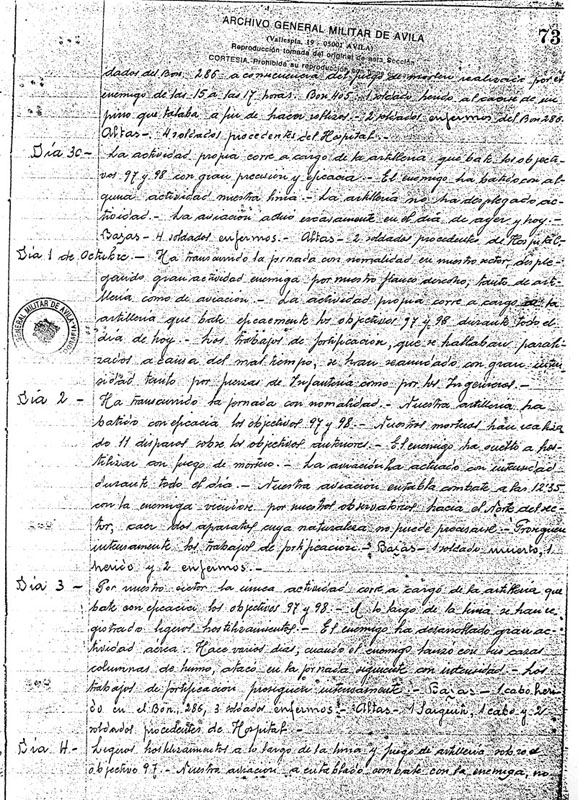 ARCHIVO GENERAL MILITAR DE AVILA
(Vallespin, 19 - 05001 AVILA)
Reproducción tomada del original de esta Sección
CORTESIA. Prohibida su reproducción
73
dados del Bon. 286 a consecuencia del fuego de mortero realizado por el
enemigo de las 15 a las 17 horas. Bon 405 - 1 soldado herido al caerse de un
pino que talaba a fin de hacer rollizos. - 2 soldados enfermos del Bon 286.
Altas - 4 soldados procedentes del Hospital. -
Día 30 - La actividad propia corre a cargo de la artillería que bate los objeti-
vos 97 y 98 con gran precisión y eficacia. - El enemigo ha batido con al-
guna actividad nuestra línea. - La artillería no ha desplegado ac-
tividad. - La aviación actuó escasamente en el día de ayer y hoy. -
Bajas - 4 soldados enfermos. - Altas - 2 soldados procedentes de Hospital -
Día 1 de Octubre - Ha transcurrido la jornada con normalidad en nuestro sector, desple-
gando gran actividad enemiga por nuestro flanco derecho, tanto de arti-
llería como de aviación. - La actividad propia corre a cargo de la
artillería que bate eficazmente los objectivos 97 y 98 durante todo el
día de hoy. - Los trabajos de fortificación, que se hallaban parali-
zados a causa del mal tiempo, se han reanudado con gran inten-
sidad tanto por fuerzas de Infantería como por los Ingenieros. -
GENERAL MILITAR DE AVILA
Día 2 - Ha transcurrido la jornada con normalidad. - Nuestra artillería ha
batido con eficacia los objectivos 97 y 98. - Nuestros morteros han realiza
do 11 disparos sobre los objectivos anteriores. - El enemigo ha vuelto a hos-
tilizar con fuego de mortero. - La aviación ha actuado con intensidad
durante todo el día. - Nuestra aviación entabla combate a las 12'35
con la enemiga viendose por nuestros observatorios hacia el Norte del sec-
tor, caer dos aparatos cuya naturaleza no puede precisarse - Prosiguen
intensamente los trabajos de fortificación - Bajas - 1 soldado muerto, 1
herido y 2 enfermos. -
Día 3 - Por nuestro sector la única actividad corre a cargo de la artillería que
bate con eficacia los objectivos 97 y 98. - A lo largo de la línea se han re
gistrado ligeros hostilizamientos. - El enemigo ha desarrollado gran ac-
tividad aérea. Hace varios días, cuando el enemigo lanzó con sus cazas
columnas de humo, atacó en la jornada siguiente con intensidad. - Los
trabajos de fortificación prosiguen intensamente - Bajas - 1 cabo heri-
do en el Bon. 286, 3 soldados enfermos - Altas - 1 Sargento, 1 cabo y 2
soldados procedentes de Hospital -
Día 4 - Ligeros hostilizamientos a lo largo de la línea y fuego de artillería sobre el
objectivo 97. - Nuestra aviación a entablado combate con la enemiga, no